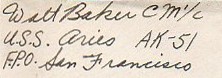 Walt Baker CM1/c
U.S.S. Aries AK-51
F.P.O. San Francisco